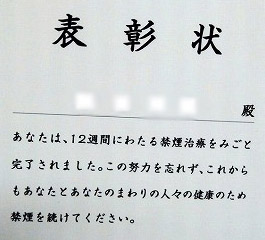 表彰状
殿
あなたは、12週間にわたる禁煙治療をみごと
完了されました。この努力を忘れず、これから
もあなたとあなたのまわりの人々の健康のため
禁煙を続けてください。